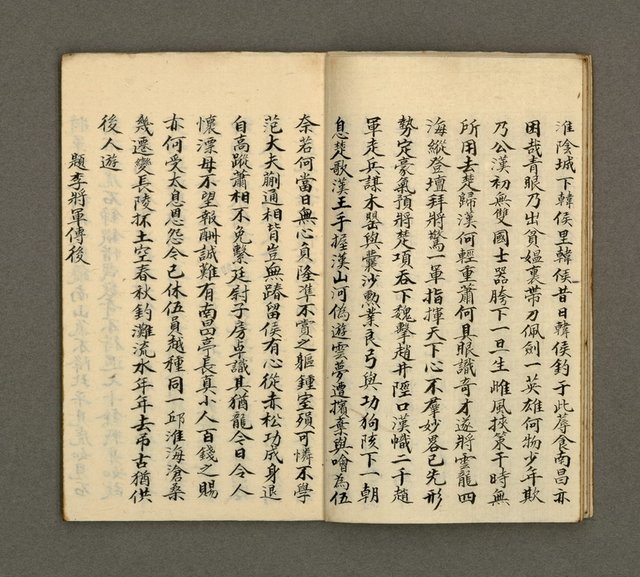 淮陰城下韓侯里韓侯昔日韓侯釣于此蓐食南昌亦
困哉青眼乃出貧媼裏帶刀佩劍一英雄何物少年欺
乃公漢初無雙國士器胯下一旦生雌風挾策干時無
所用去楚歸漢何輕重蕭何具眼識奇才遂將雲龍四
海縱登壇拜將驚一軍指揮天下心不羣妙畧已先形
勢定豪氣預將楚項吞下魏擊趙井陘口漢幟二千趙
軍走兵謀木罌與囊沙勲業良弓與功狗陔下一朝
息楚歌漢王手握漢山河偽遊雲夢遭擯棄與噲為伍
奈若何當日無心負隆準不賞之軀鍾室殞可憐不學
范大夫蒯通相背豈無踳留侯有心從赤松功成身退
自高蹤蕭相不免繫廷尉子房卓識其猶龍今日令人
懷漂母不望報酬誠難有南昌亭長真小人百錢之賜
亦何受太息恩怨今已休伍員越種同一邱淮海滄桑
幾遷變長陵抔土空春秋釣灘流水年年去弔古猶供
後人遊
題李將軍傳後